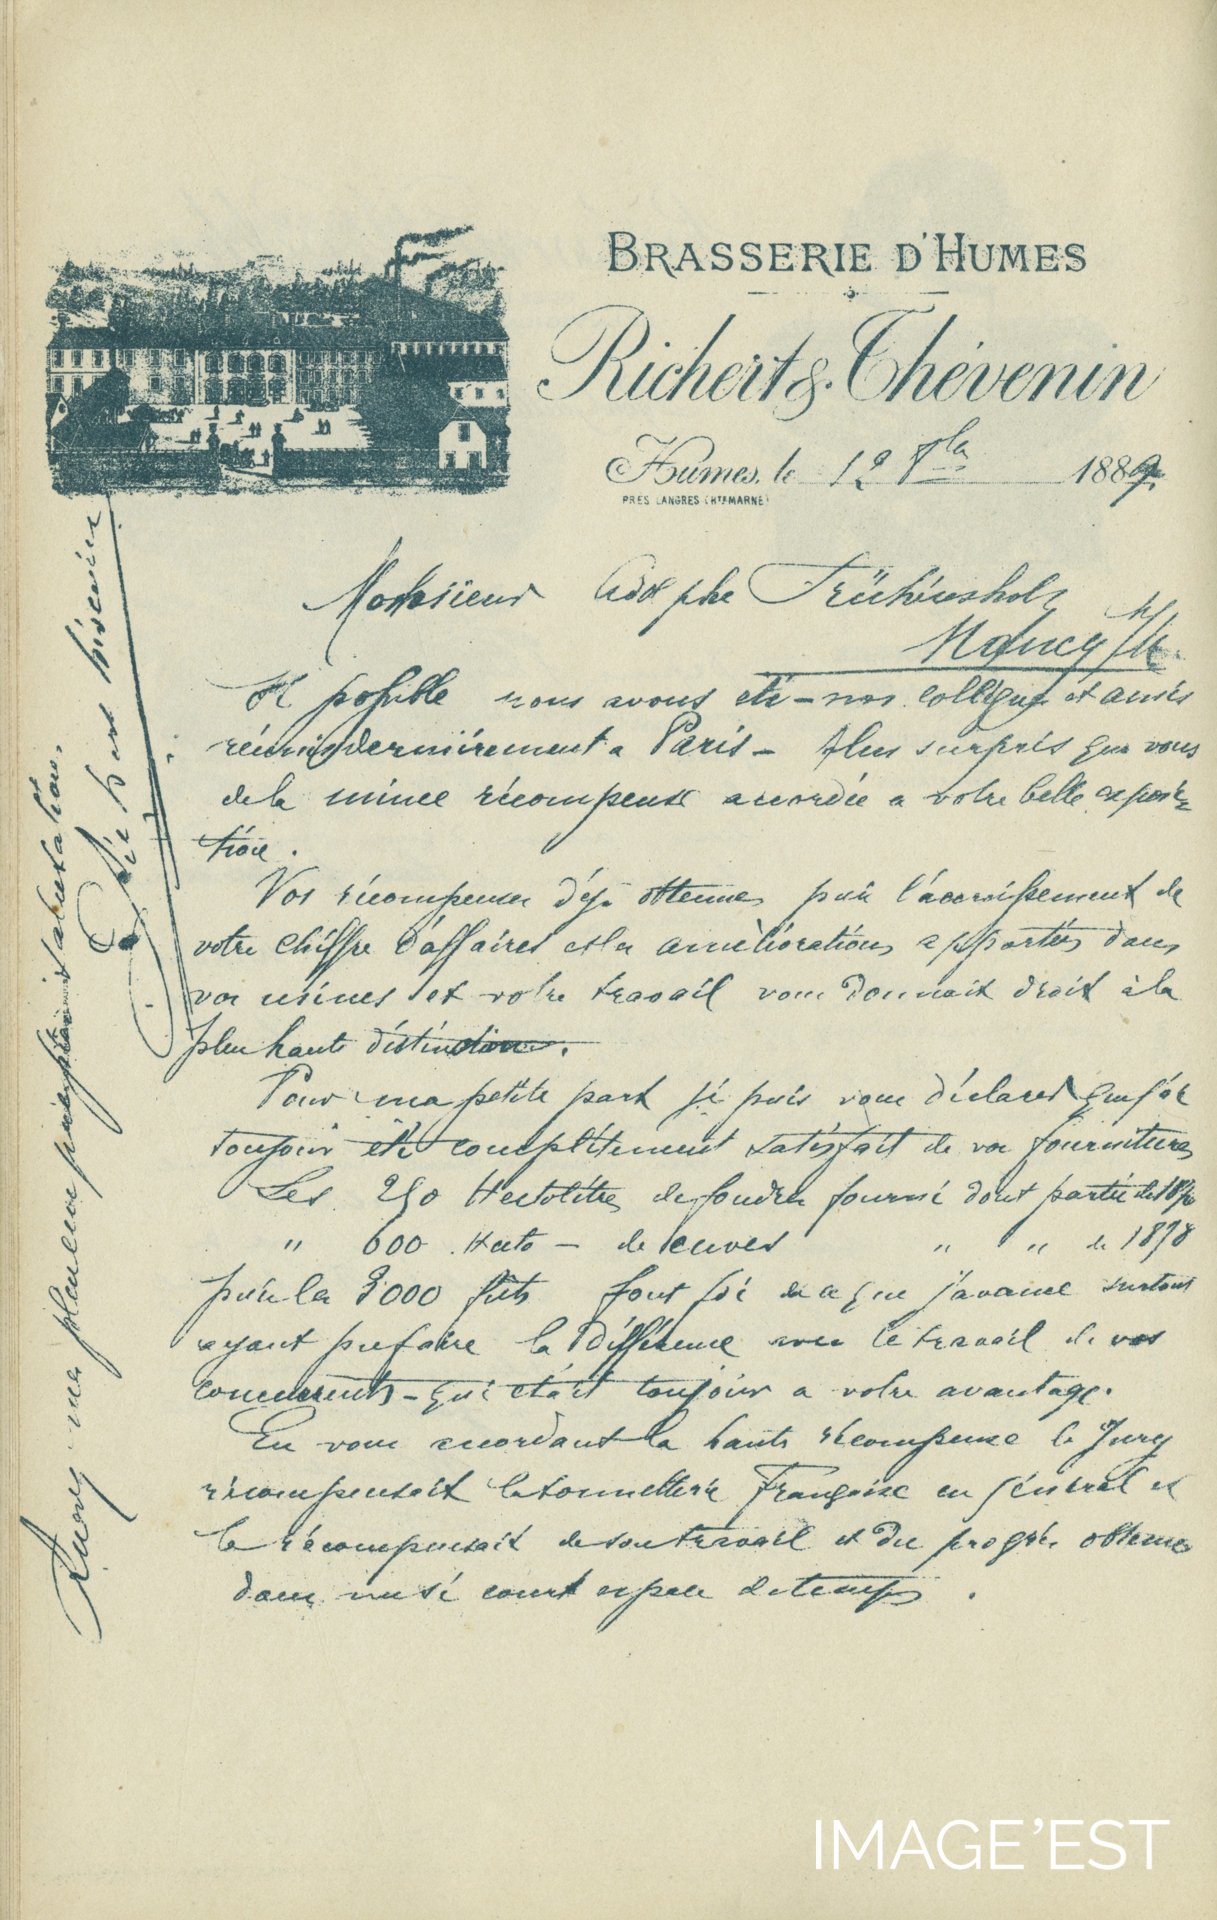 BRASSERIE D'HUMES
Richert & Thévenin
Humes, le 12 8bre 1889
PRÈS LANGRES (HTE MARNE)
Monsieur Adolphe Frühinsholz
Nancy
Si possible nous avons été - nos collègues et amis
réunis dernièrement a Paris - plus surpris que vous
de la mince récompense accordée a votre belle exposi-
tion.
Vos récompenses déjà obtenues puis l'accroissement de
votre chiffre d'affaires et les améliorations apportées dans
vos usines et votre travail vous donnait droit à la
plus haute distinction.
Pour ma petite part je puis vous déclarer que j'ai
toujours été complètement satisfait de vos fournitures
Les 250 Hectolitres de foudres fournis dont partie de
" 600 Hecto - de cuves " " de 1878
puis les 3000 fûts font foi de ce que j'avance surtout
ayant pu faire la différence avec le travail de vos
concurrents - qui était toujours a votre avantage.
En vous accordant la haute récompense le Jury
récompensait la tonnellerie Française en général et
la récompensait de son travail et du progrès obtenu
dans un si court espace de temps.
Agréez mes salutations.
IMAGE'EST